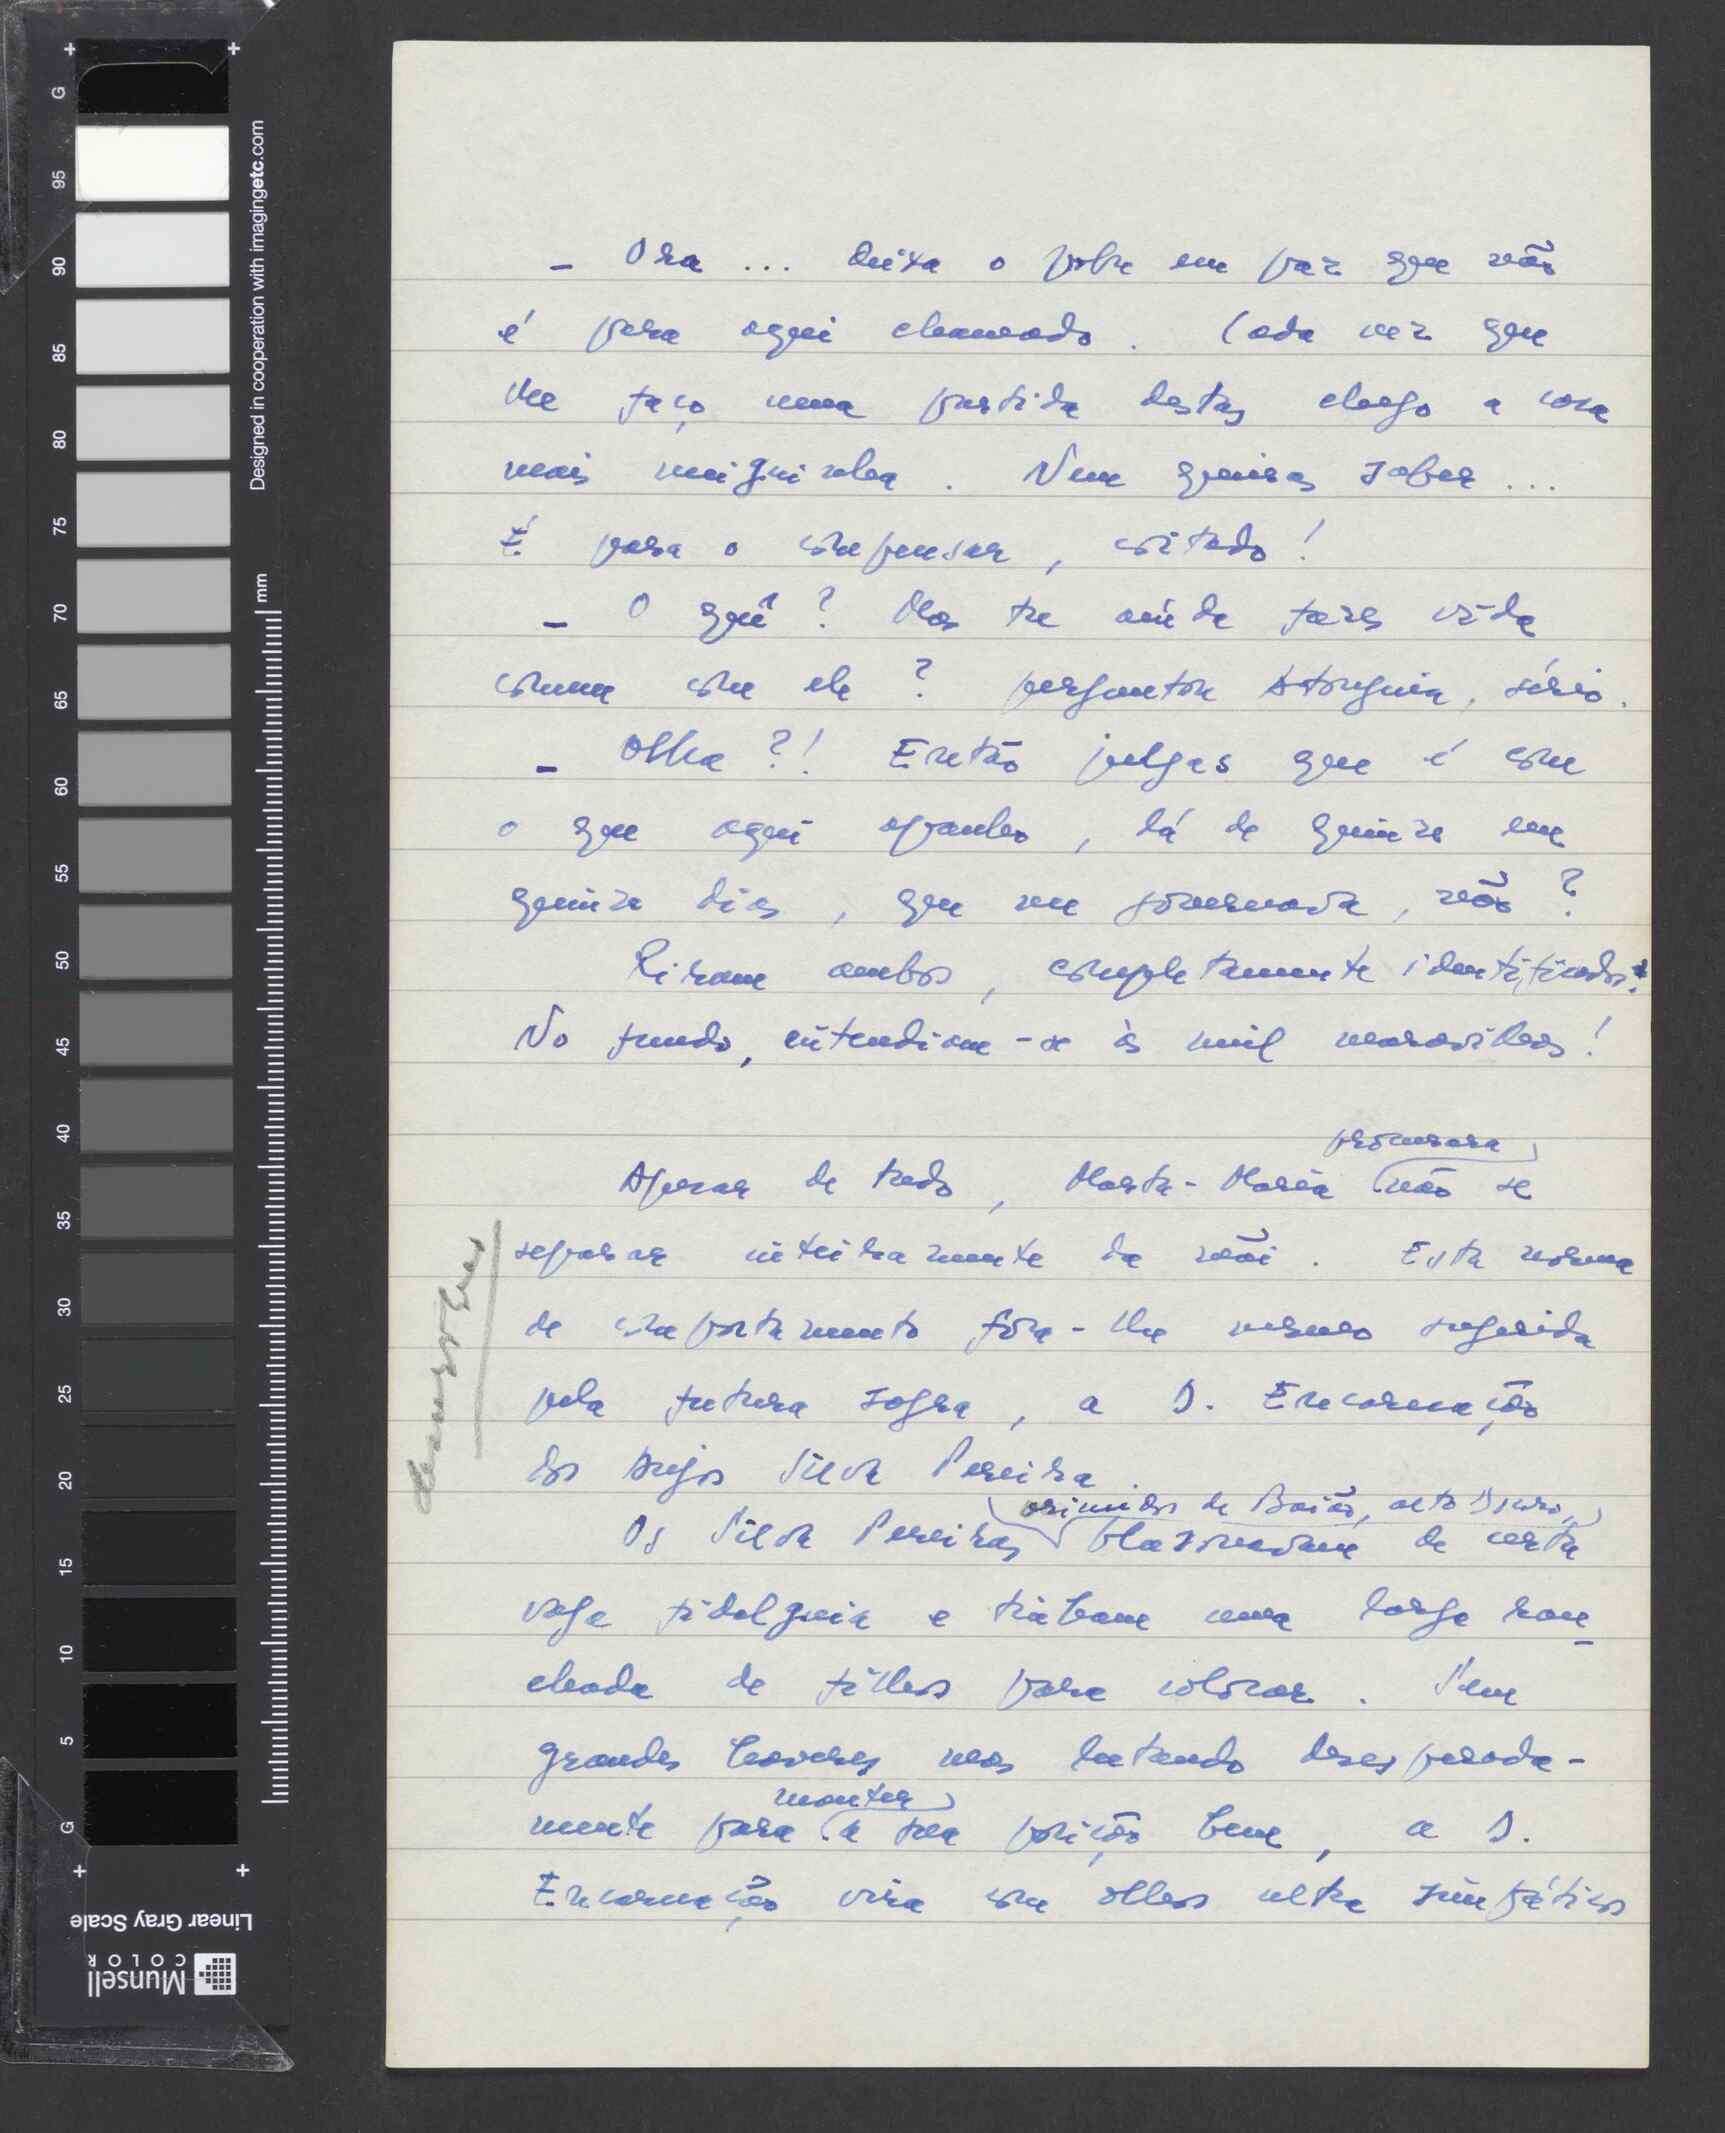 G
95
90
85
80
75
70
65
60
55
50
45
40
35
30
25
20
15
10
5
G
Designed in cooperation with imagingetc.com
mm
Linear Gray Scale
Munsell
COLOR
– Ora ... deixa o pobre em paz que não
é para aqui chamado. Cada vez que
lhe faço uma partida destas chego a casa
mais meiguinha. Nem queiras saber ...
É para o compensar, coitado!
– O quê? Mas tu ainda fazes vida
comum com ele? perguntou Atouguia, sério.
– Olha?! Então julgas que é com
o que aqui apanho, lá de quinze em
quinze dias, que me governava, não?
Riram ambos, completamente identificados.
No fundo, entendiam-se às mil maravilhas!
procurara
Apesar de tudo, Marta-Maria não se
separar inteiramente da mãi. Esta norma
de comportamento fôra-lhe mesmo sugerida
pela futura sogra, a D. Encarnação
dos Anjos Silva Pereira.
oriundos de Baião, alto Douro,
Os Silva Pereiras blazonavam de certa
vaga fidalguia e tinham uma larga ran-
chada de filhos para colocar. Sem
grandes haveres mas lutando desesperada-
manter
mente para a sua posição bem, a D.
Encarnação vira com olhos ultra simpáticos